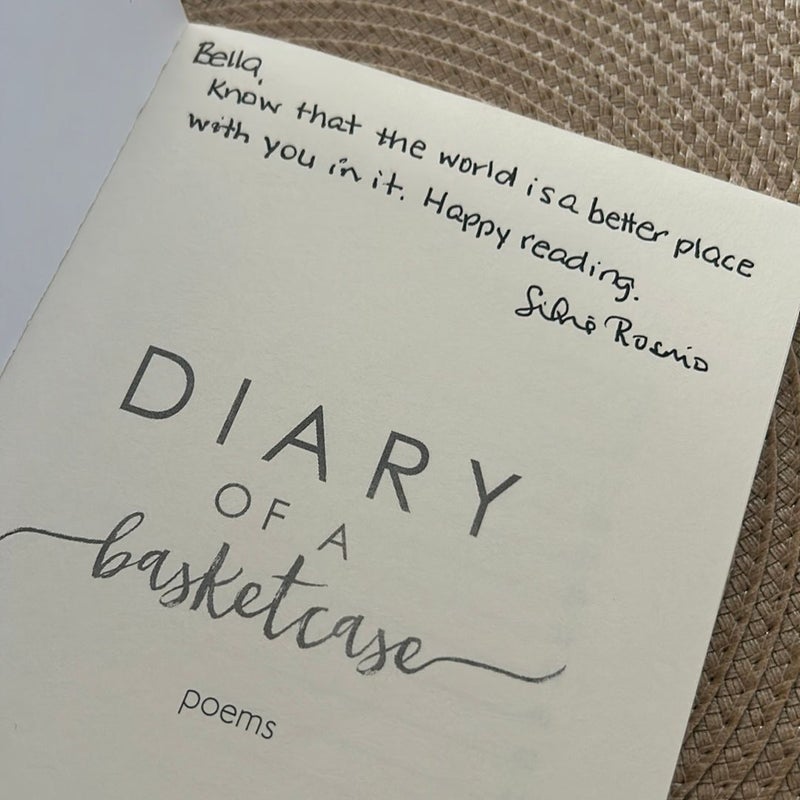 Bella,
Know that the world is a better place
with you in it. Happy reading.
Rosario
DIARY
OF A
basketcase
poems